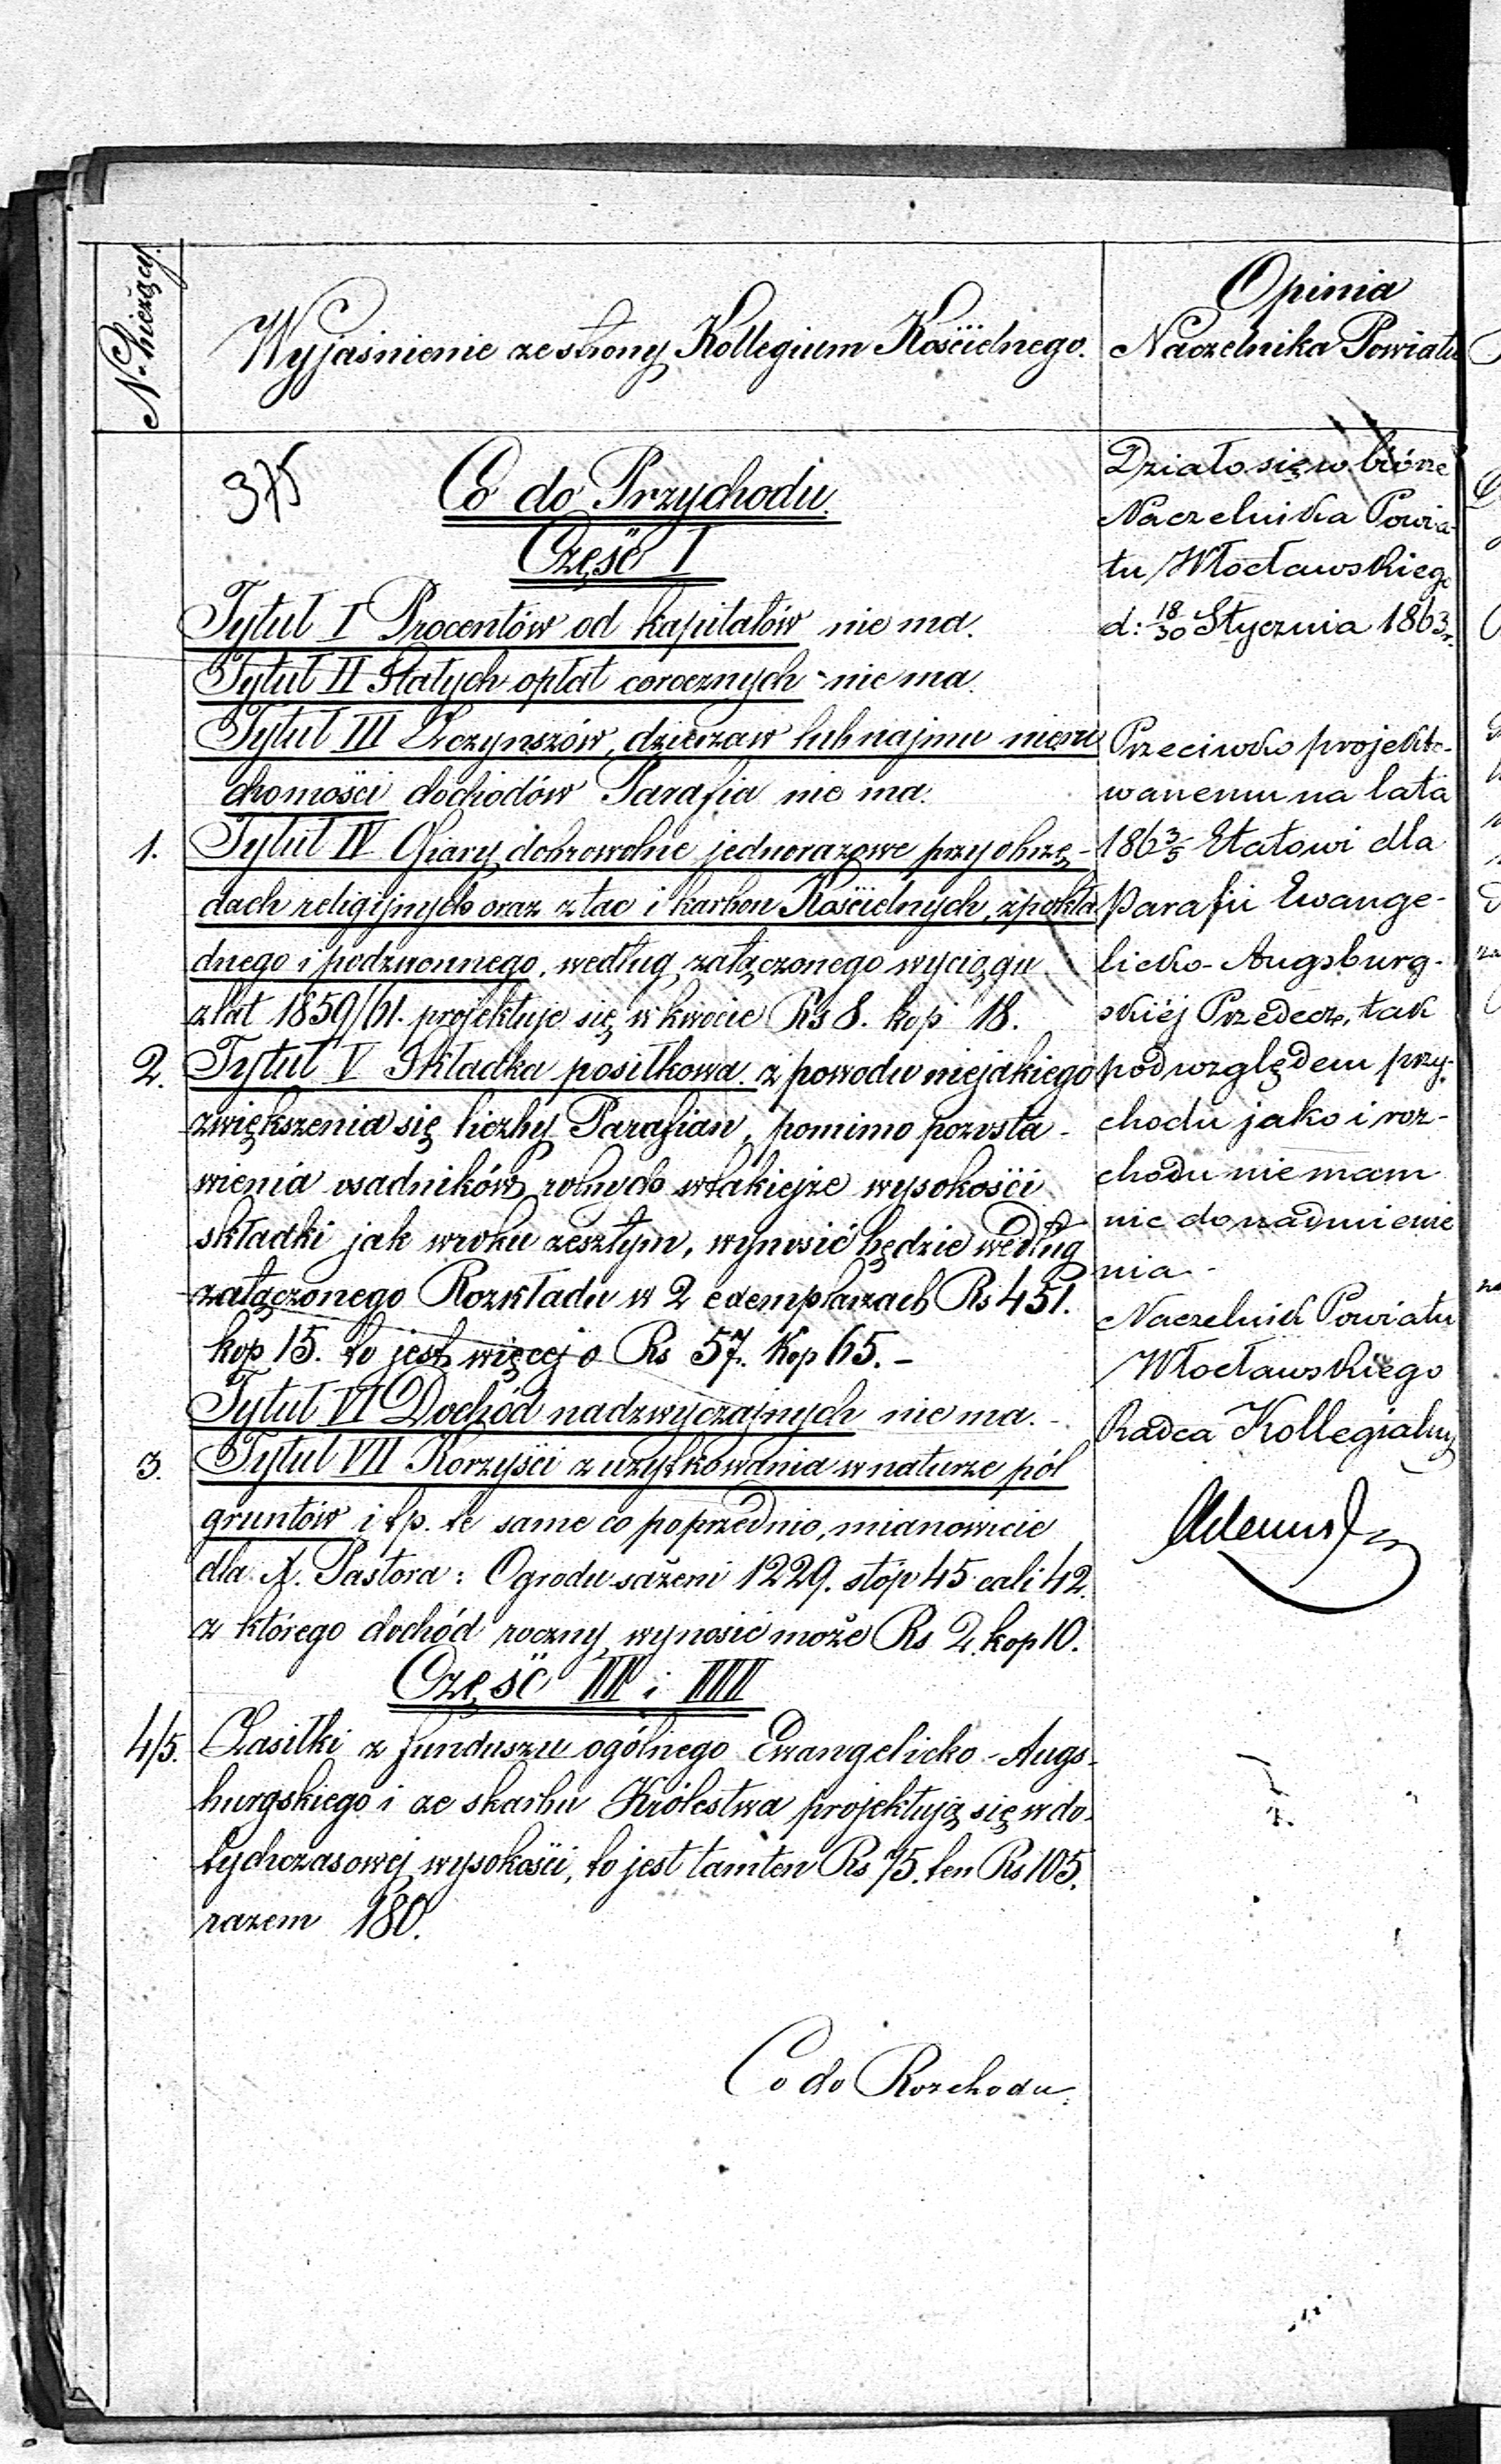 N. bieżący.
Wyjaśnienie ze strony Kollegium Kościelnego.
Opinia
Naczelnika Powiatu
375
Co do Przychodu.
Część I
Tytuł I Procentów od kapitałów nie ma.
Tytuł II Stałych opłat corocznych - nie ma.
Tytuł III Z czynszów, dzierzaw lub najmu nieru
chomości dochodów Parafia nie ma.
1. Tytuł IV Ofiary dobrowolne jednorazowe przy obrzę-
dach religijnych oraz z tac i karbon Kościelnych, z pokła
dnego i podzwonnego, według załączonego wyciągu
z lat 1859/61. projektuje się w kwocie Rs 8. kop 18.
2. Tytuł V Składka posiłkowa. z powodu niejakiego
zwiększenia się liczby Parafian, pomimo pozosta-
wienia osadników rolnych w takiejże wysokości
składki jak w roku zeszłym, wynosić będzie według
załączonego Rozkładu w 2 exemplarzach Rs 451.
kop 15. to jest więcej o Rs 57. Kop 65. -
Tytuł VI Dochód nadzwyczajnych nie ma. -
3. Tytuł VII Korzyści z użytkowania w naturze pól
gruntów i t p. te same co poprzednio, mianowicie
dla X. Pastora: Ogrodu sążeni 1229. stóp 45 cali 42.
z którego dochód roczny wynosić może Rs 2. kop 10.
Część II i III
4/5. Zasiłki z funduszu ogólnego Ewangelicko-Augs-
burgskiego i ze skarbu Królestwa projektują się w do-
tychczasowej wysokości, to jest tamten Rs 75. ten Rs 105.
razem 180.
Co do Rozchodu.
Działo się w biórze
Naczelnika Powia-
tu Włocławskiego
d: 18/30 Stycznia 1863 r.
Przeciwko projekto-
wanemu na lata
1863/5 Etatowi dla
parafii Ewange-
licko-Augsburg-
skiéj Przedecz, tak
pod względem przy-
chodu jako i roz-
chodu nie mam
nic do nadmienie
nia -
Naczelnik Powiatu
Włocławskiego
Radca Kollegialny